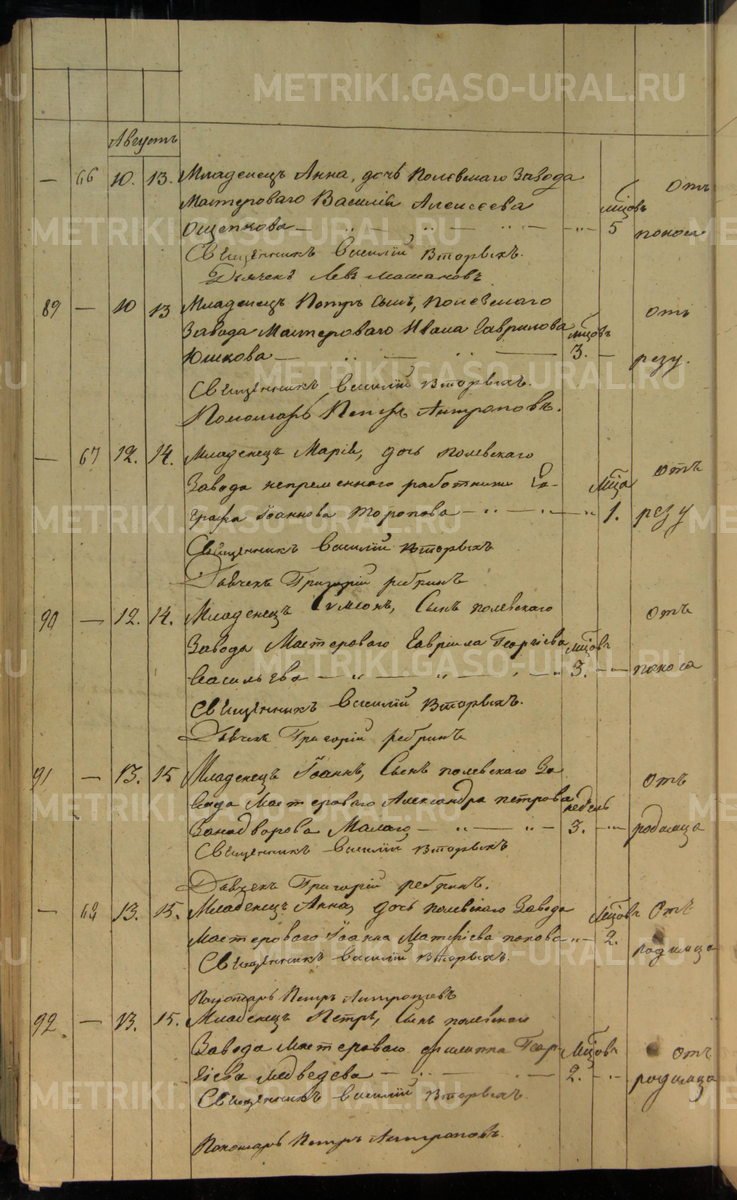 METRIKI.GASO-URAL.RU
Августъ
— 66 10. 13. Младенецъ Анна, дочь Полевскаго Завода
Мастероваго Василія Алексеева мѣсцовъ отъ
Ощепкова — 5 поноса
Священникъ Василій Вторыхъ.
Дьячекъ Левъ
89 — 10 13 Младенецъ Петръ сынъ, Полевскаго отъ
Завода Мастероваго Ивана Гаврилова мѣсцовъ
Юшкова — 3. — резу.
Священникъ Василій Вторыхъ.
Пономарь Петръ Антроповъ.
— 67 12. 14. Младенецъ Марія, дочь полевскаго
Завода непременнаго работника Ев- мѣсца отъ
графа Іоаннова Торопова — 1. резу
Священникъ Василій Вторыхъ
Дьячекъ Григорій ребринъ
90 — 12. 14. Младенецъ Сумеонъ, Сынъ полевскаго отъ
Завода Мастероваго Гавріила Георгіева мѣсцовъ
Васильева — 3. — поноса
Священникъ Василій Вторыхъ.
Дьячекъ Григорій ребринъ
91 — 13. 15 Младенецъ Іоаннъ, Сынъ полевскаго За отъ
вода Мастероваго Александра петрова недель
Занадворова Малаго — 3. — родимца
Священникъ Василій Вторыхъ
Дьячекъ Григорій ребринъ.
— 68 13. 15. Младенецъ Анна, дочь полевскаго Завода мѣсцовъ Отъ
Мастероваго Іоанна Матфіева попова — 2. родимца
Священникъ Василій Вторыхъ.
Пономарь Петръ Антроповъ
92 — 13. 15. Младенецъ Петръ, Сынъ полевскаго
Завода Мастероваго филиппа Геор мѣсцовъ отъ
гіева медведева — 2. — родимца
Священникъ Василій Вторыхъ.
Пономарь Петръ Антроповъ.